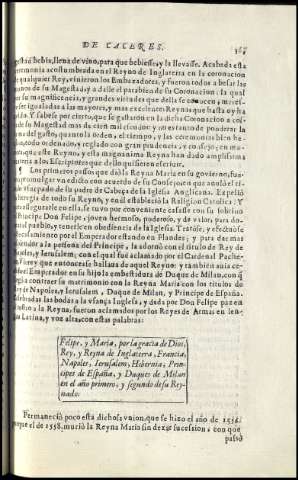 DE CACERES.
gestad bebia, llena de vino, para que bebiesse, y la lleuasse. Acabada esta
ceremonia acostumbrada en el Reyno de Inglaterra en la coronacion
de qualquier Rey, vinieron los Embaxadores, y fueron todos a besar las
manos de su Magestad, y a dalle el parabien de su Coronacion: la qual
por su magnificencia, y grandes virtudes que della se conocen, merece
ser ygualada a las mayores, y mas excelentes Reynas que hasta oy ha
auido. Y sabese por cierto, que se gastaron en la dicha Coronacion a cos-
ta de su Magestad mas de cien mil escudos; y no estante de ponderar la
grandeza del gasto, quanto la orden, el tiempo, y las ceremonias bien he-
chas, todo ordenado, y reglado con gran prudencia, y consejo; en ma-
nera, que este Reyno, y esta magnanima Reyna han dado amplissima
materia a los Escriptores que dello quisieren escriuir.
¶ Los primeros passos que daba la Reyna Maria en su gouierno, fue-
ron
de Cabeça de la Iglesia Anglicana. Expelió
la heregia de todo su Reyno, y en él estableció la Religion Catolica: Y
para assegurarse en ella, se tuvo por conueniente casasse con su sobrino
el Principe Don Felipe, joven hermoso, poderoso, y de valor, para do-
mar al pueblo, y tenerle en obediencia de la Iglesia. Tratóse, y efectuóse
el casamiento por el Emperador estando en Flandes; y para darmas
al Principe, la adornó con el titulo de Rey de
Napoles, y Ierusalem; con el qual fue aclamado por el Cardenal Pache-
co Virrey que entonces se hallaua de aquel Reyno; y tambien auia ce-
dido el Emperador en su hijo la embestidura de Duque de Milan, con que
llegó contraer su matrimonio con la Reyna Maria con los titulos de
Rey de Napoles, y Ierusalem, Duque de Milan, y Principe de España.
Celebradas las bodas a la vsança Inglesa, y dada por Don Felipe paz en
la Iglesia a la Reyna, fueron aclamados por los Reyes de Armas en len-
gua Latina, y voz alta, con estas palabras:
Felipe, y Maria, por la gracia de Dios,
Rey, y Reyna de Inglaterra, Francia,
Napoles, Ierusalem, Hibernia, Prin-
cipes de España, y Duques de Milan
en el año primero, y segundo de su Rey-
nado.
Permaneció poco esta dichosa vnion, que se hizo el año de 1554.
porque el de 1558. murió la Reyna Maria sin dexar sucession, con que
passó